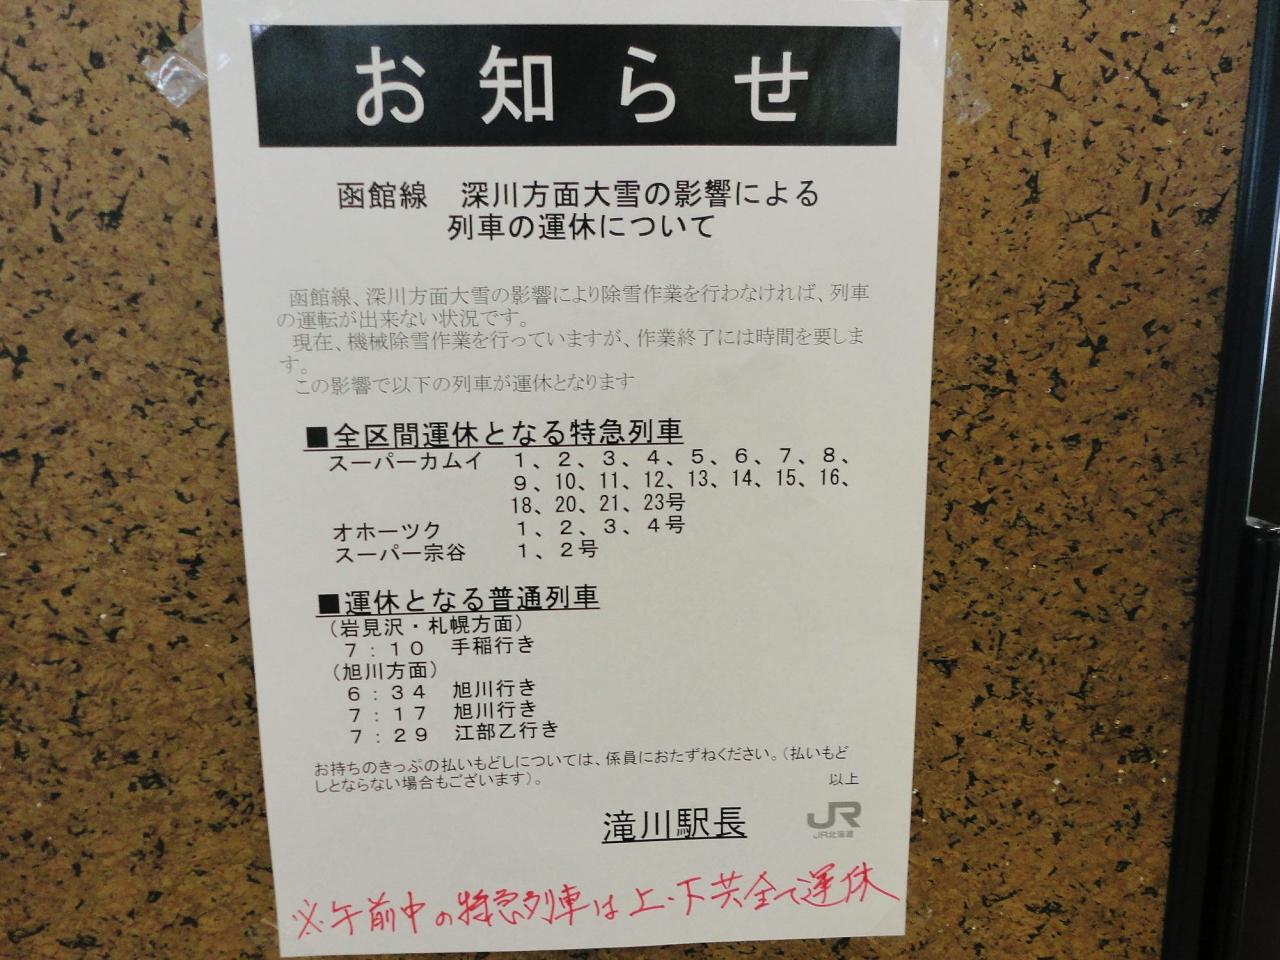 お知らせ
函館線　深川方面大雪の影響による
列車の運休について
函館線、深川方面大雪の影響により除雪作業を行わなければ、列車
の運転が出来ない状況です。
現在、機械除雪作業を行っていますが、作業終了には時間を要しま
す。
この影響で以下の列車が運休となります
■全区間運休となる特急列車
スーパーカムイ　１、２、３、４、５、６、７、８、
９、10、11、12、13、14、15、16、
18、20、21、23号
オホーツク　１、２、３、４号
スーパー宗谷　１、２号
■運休となる普通列車
（岩見沢・札幌方面）
７：１０　手稲行き
（旭川方面）
６：３４　旭川行き
７：１７　旭川行き
７：２９　江部乙行き
お持ちのきっぷの払いもどしについては、係員におたずねください。（払いもど
しとならない場合もございます）。
以上
滝川駅長
JR
JR北海道
※午前中の特急列車は上・下共全て運休